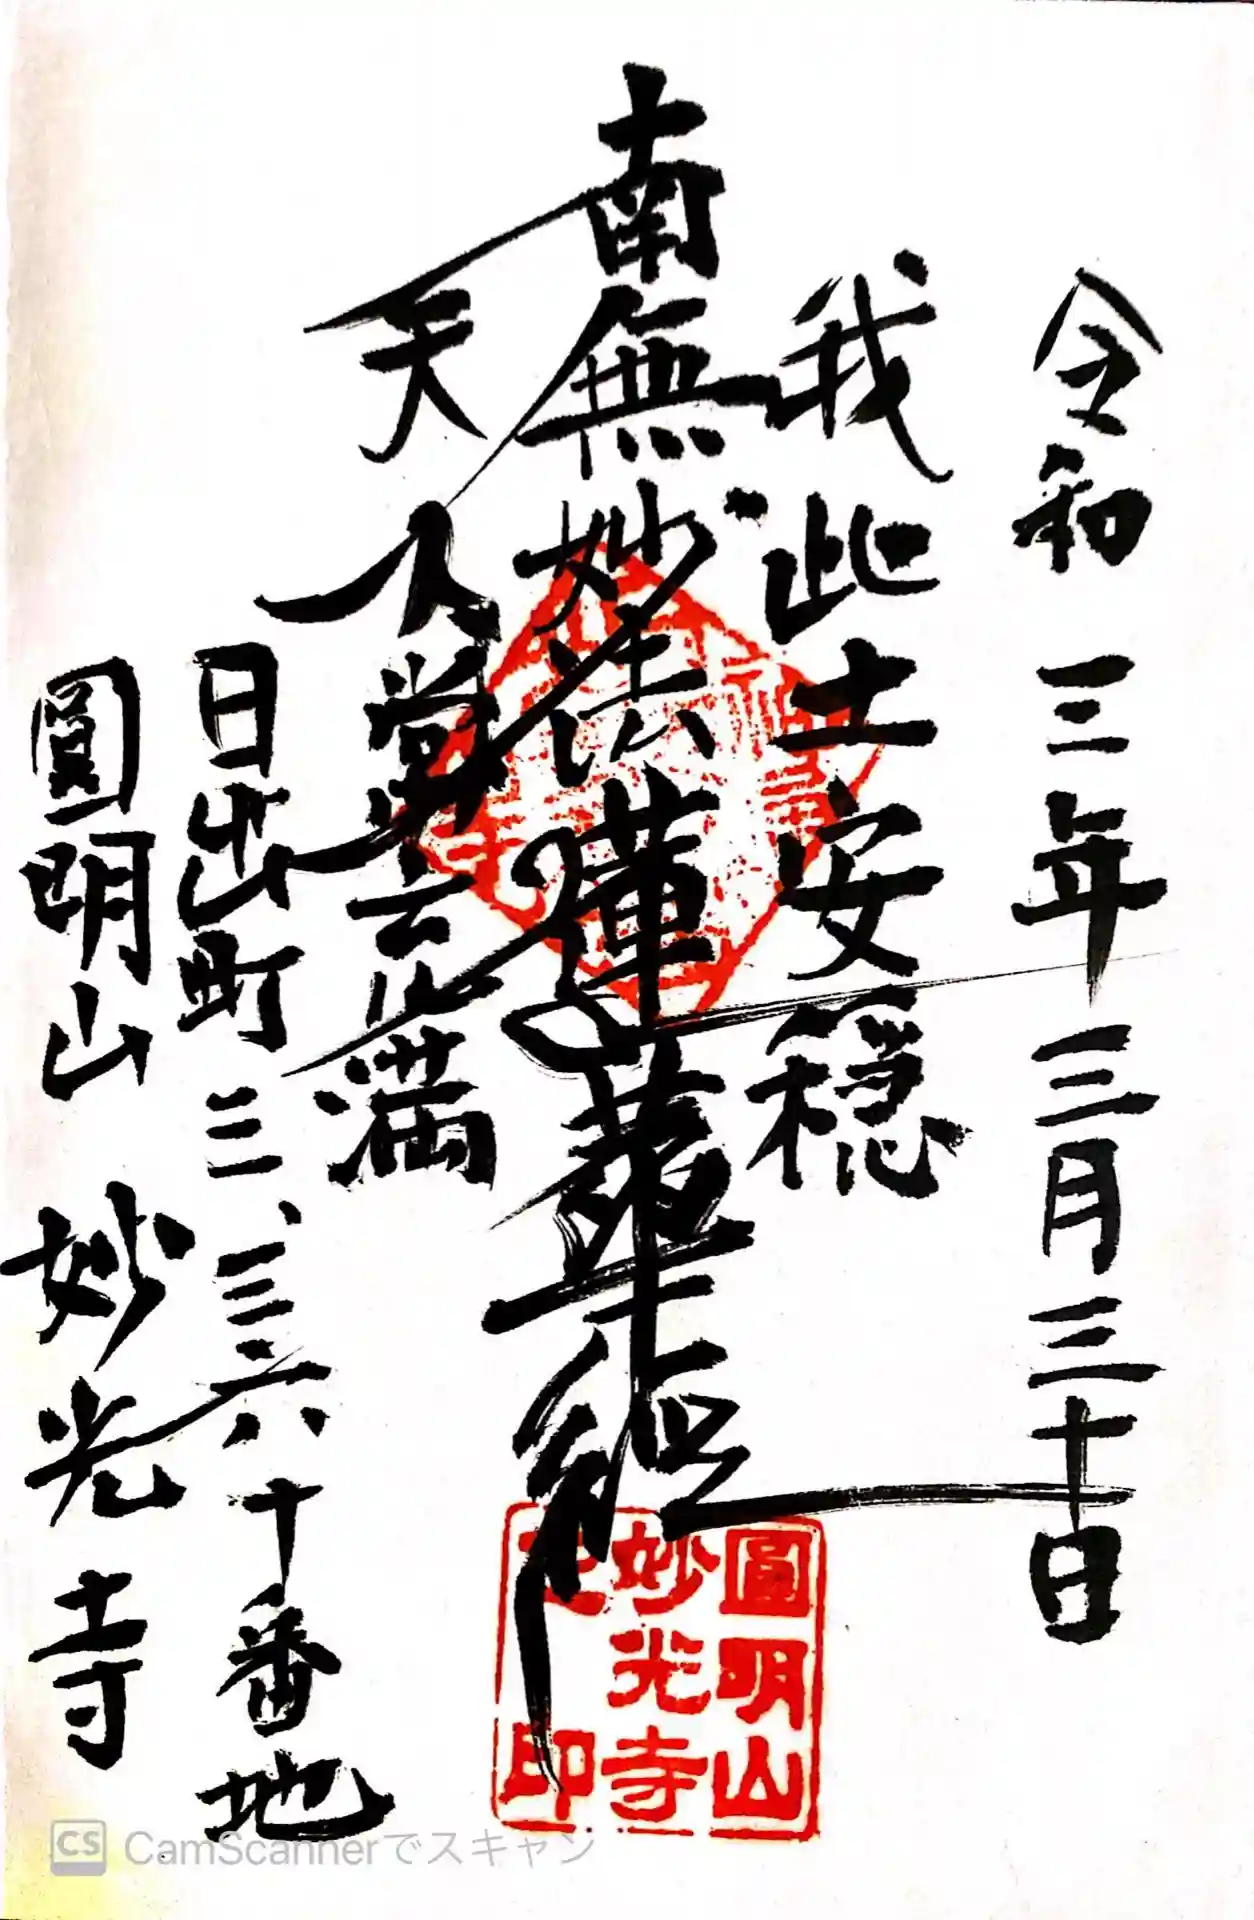 令和三年三月三十日
我此土安穏
南無妙法蓮華経
天人常充満
日出町三、三三六十番地
圓明山 妙光寺
圓明山
妙光寺
之印
CS CamScannerでスキャン